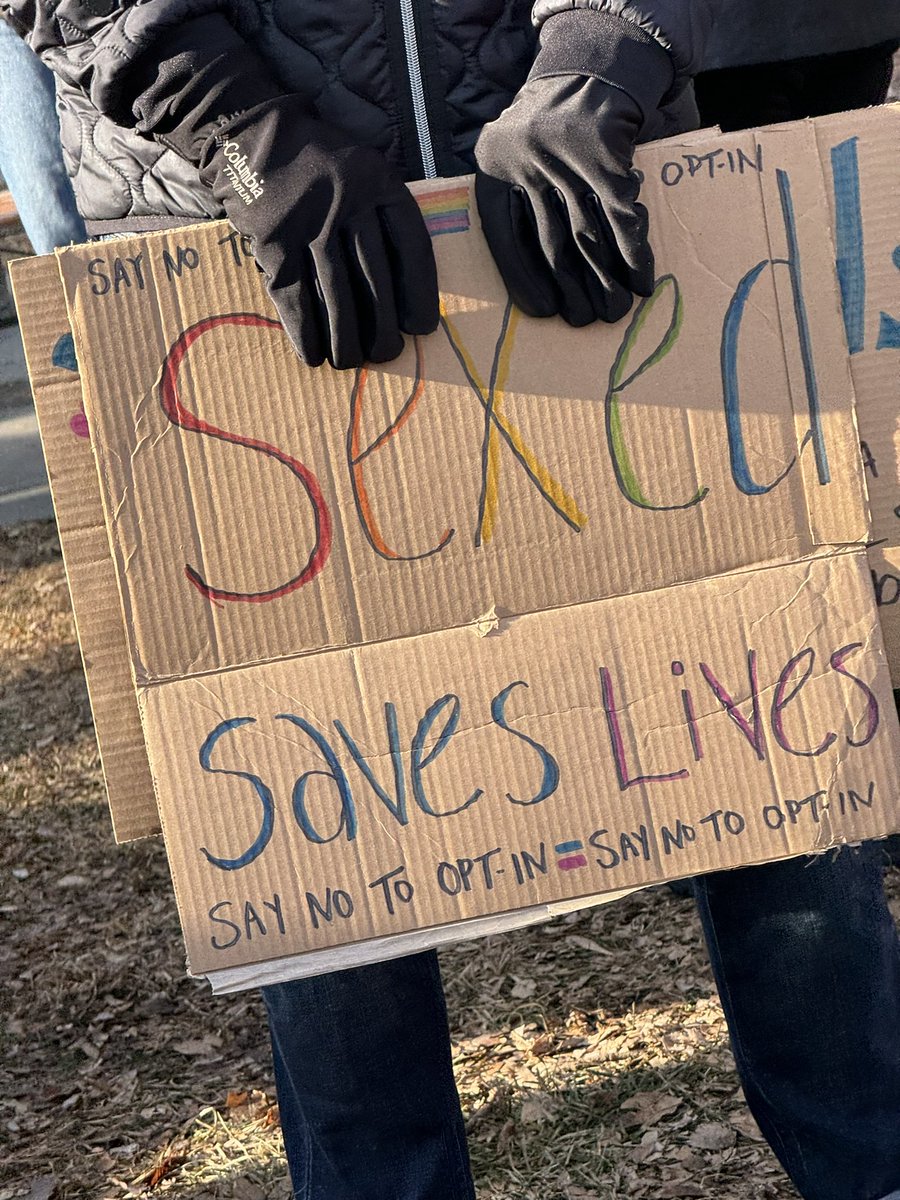 Columbia
TITANIUM
SAY NO TO OPT-IN
Sexed
Saves Lives
SAY NO TO OPT-IN = SAY NO TO OPT-IN